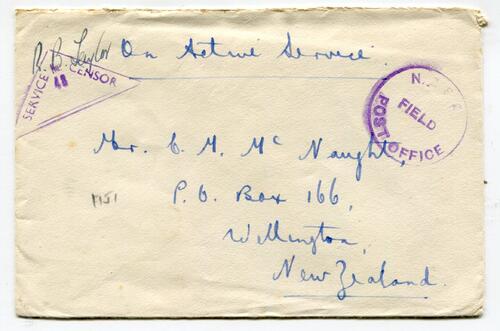 R. B. Taylor
On Active Service.
SERVICE CENSOR
48
FIELD
POST OFFICE
Mr. C. H. Mc Naught,
P.O. Box 166,
Wellington,
New Zealand.